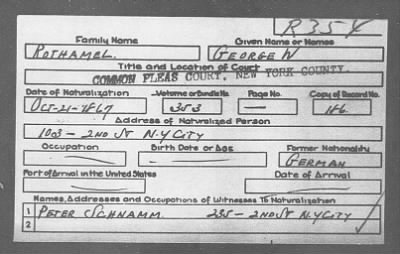 R354
Family Name Given Name or Names
ROTHAMEL GEORGE W
Title and Location of Court
COMMON PLEAS COURT, NEW YORK COUNTY
Date of Naturalization Volume or Bundle No. Page No. Copy of Record No.
OCT-21-1867 353 — 186
Address of Naturalized Person
103 - 2ND ST N.Y CITY
Occupation Birth Date or Age Former Nationality
GERMAN
Port of Arrival in the United States Date of Arrival
Names, Addresses and Occupations of Witnesses To Naturalization
1 PETER SCHNAMM. 235 - 2ND ST N.Y CITY
2